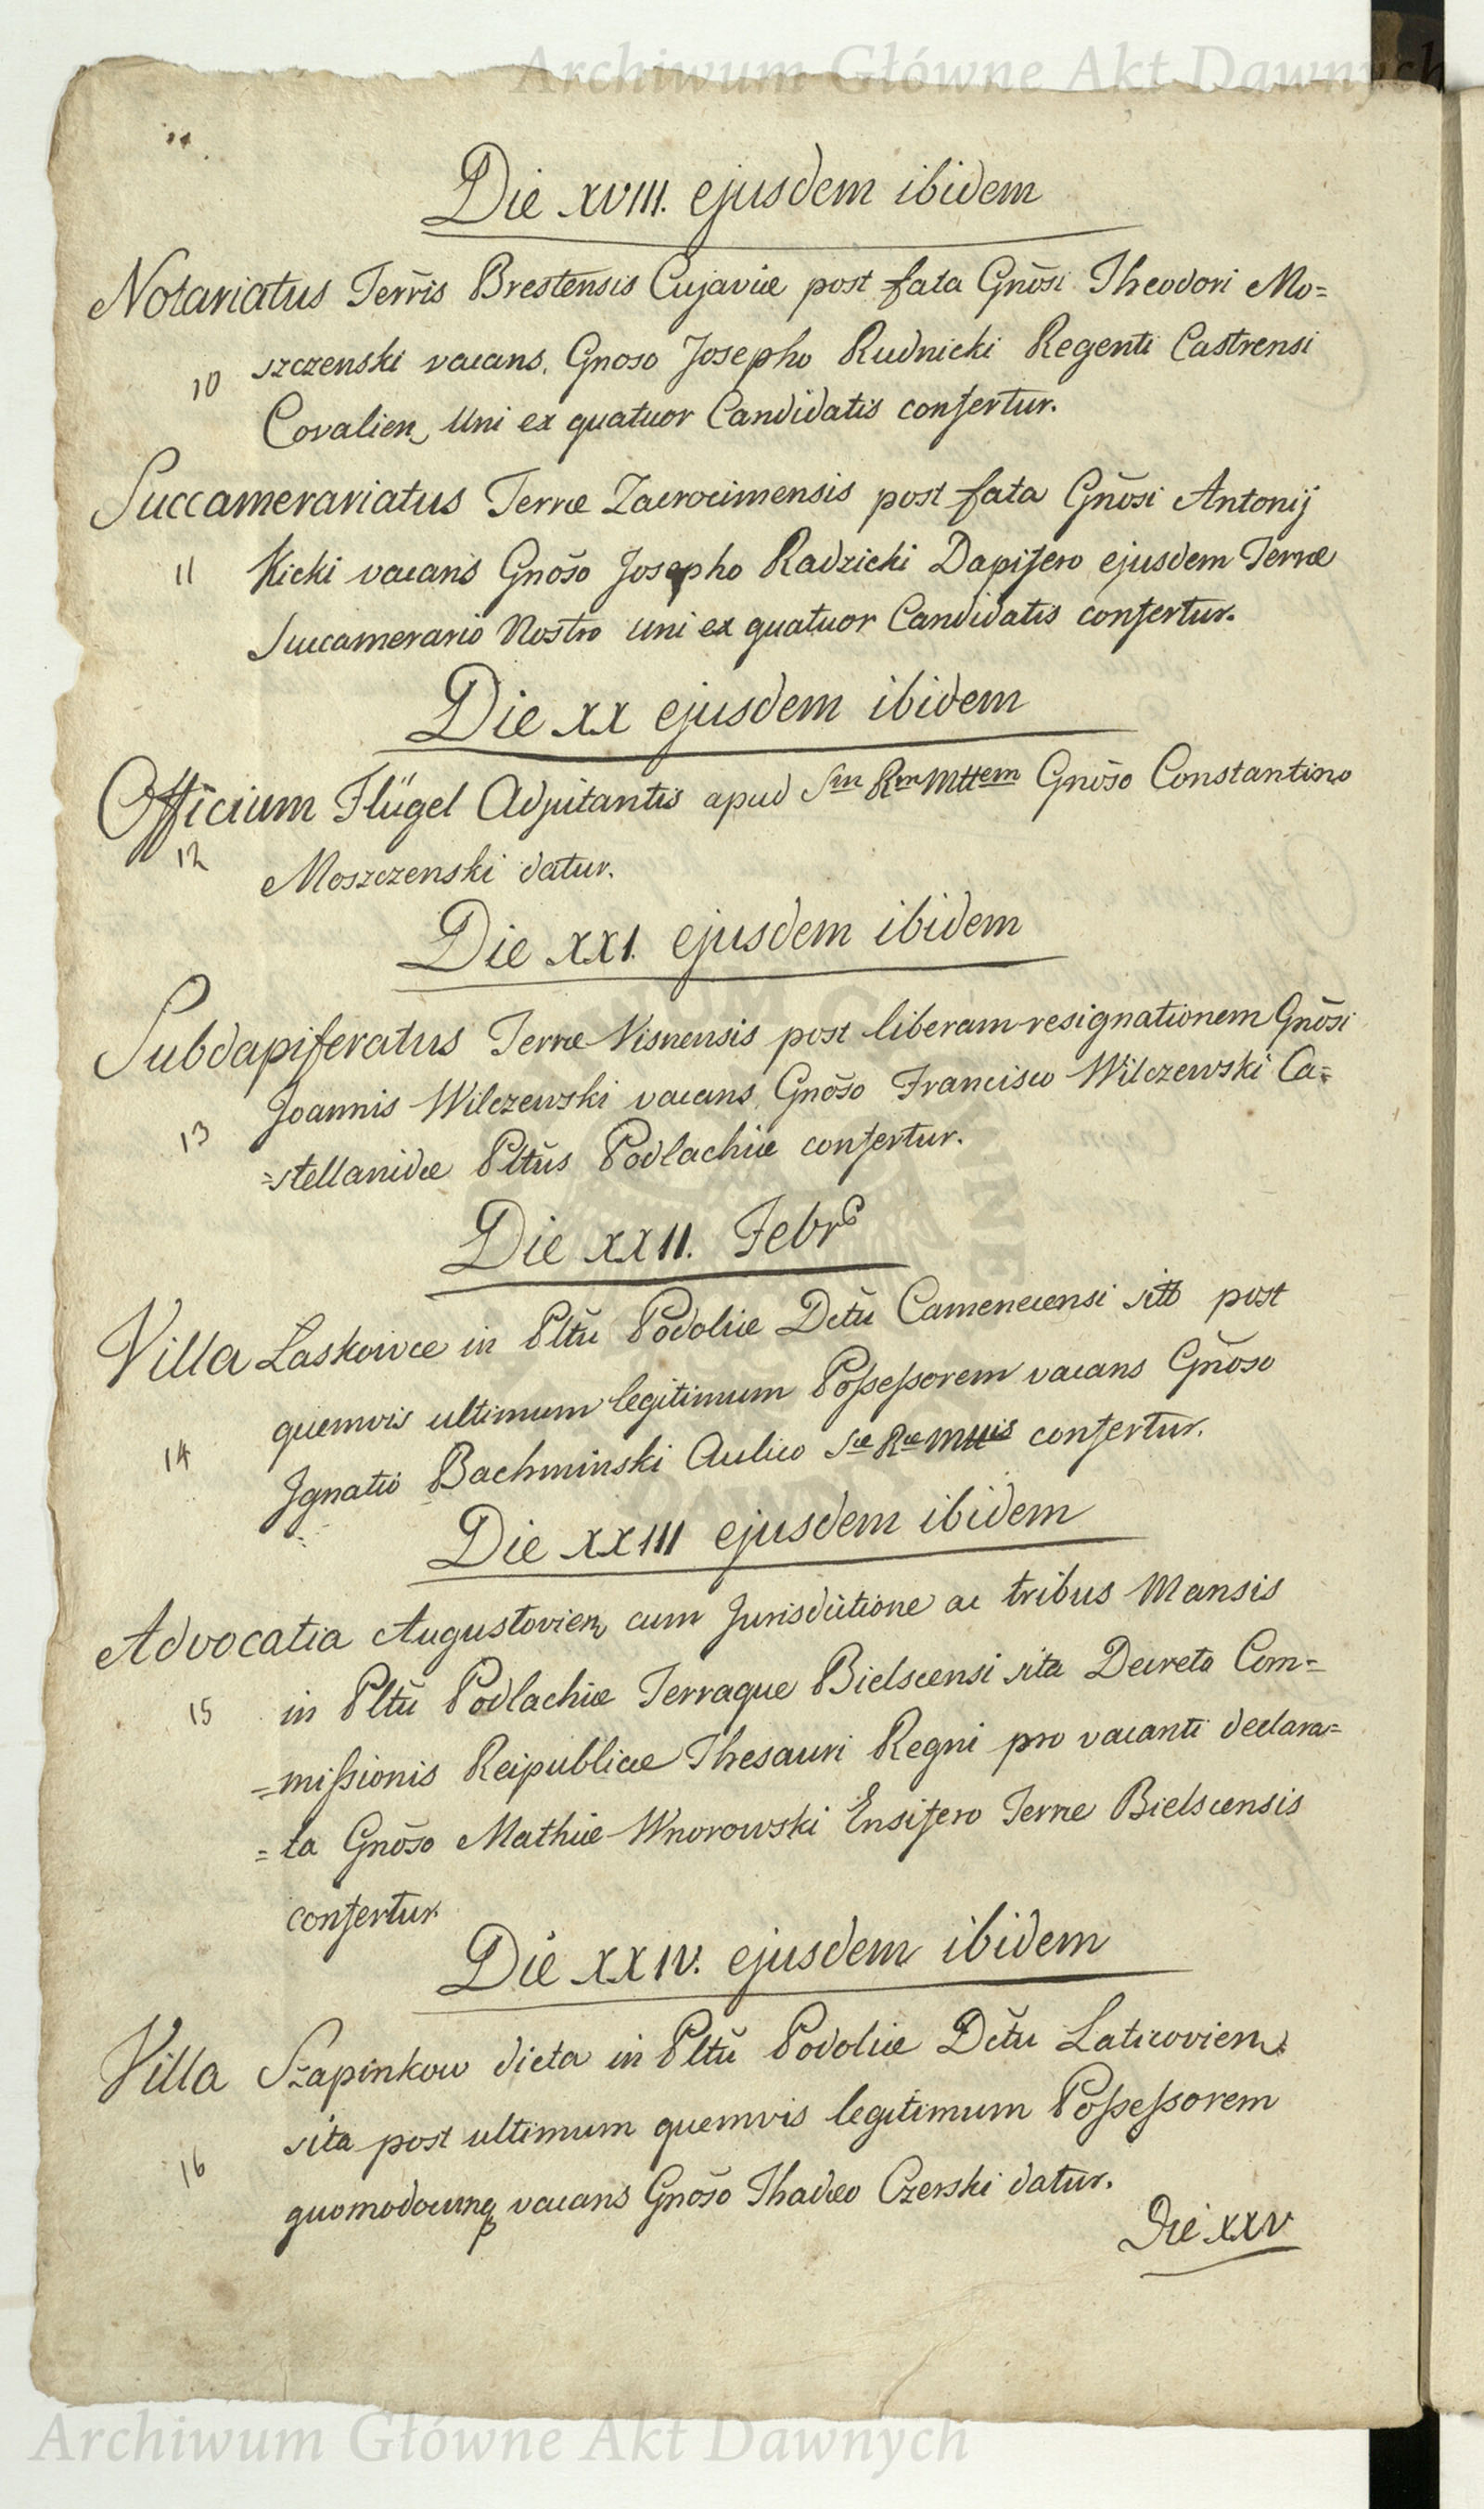 Archiwum Główne Akt Dawnych
Die XVIII. ejusdem ibidem
Notariatus Terr̃is Brestensis Cujaviæ post fata Gñosi Theodori Mo=
szczenski vacans, Gnoso Josepho Rudnicki Regenti Castrensi
10
Covalien, Uni ex quatuor Candidatis confertur.
Succamerariatus Terræ Zacrocimensis post fata Gñosi Antonij
11 Kicki vacans Gnõso Josepho Radzicki Dapifero ejusdem Terræ
Succamerario Nostro uni ex quatuor Candidatis confertur.
Die XX ejusdem ibidem
Officium Flügel Adjutantis apud Sm Rm Mttem Gnõso Constantino
12 Moszczenski datur.
Die XXI. ejusdem ibidem
Subdapiferatus Terræ Visnensis post liberam resignationem Gnõsi
Joannis Wilczewski vacans Gnõso Francisco Wilczewski Ca=
13
=stellanidæ Pltũs Podlachiæ confertur.
Die XXII. Febr
Villa Laskowce in Pltũ Podoliæ Dctũ Camenecensi sitt post
quemvis ultimum legitimum Poſseſsorem vacans Gñoso
14
Jgnatio Bachminski Aulico Sæ Ræ Mttis confertur.
Die XXIII ejusdem ibidem
Advocatia Augustovien, cum Jurisdictione ac tribus Mansis
15 in Pltũ Podlachiæ Terraque Bielscensi sita Decreto Com=
=miſsionis Reipublicæ Thesauri Regni pro vacanti declara=
=ta Gnõso Mathiæ Wnorowski Ensifero Terræ Bielscensis
confertur
Die XXIV. ejusdem ibidem
Villa Szapinkow dicta in Pltũ Podoliæ Dctũ Laticovien,
sita post ultimum quemvis legitimum Poſseſsorem
16
quomodocunq, vacans Gnõso Thadeo Czerski datur.
Die XXV
Archiwum Główne Akt Dawnych